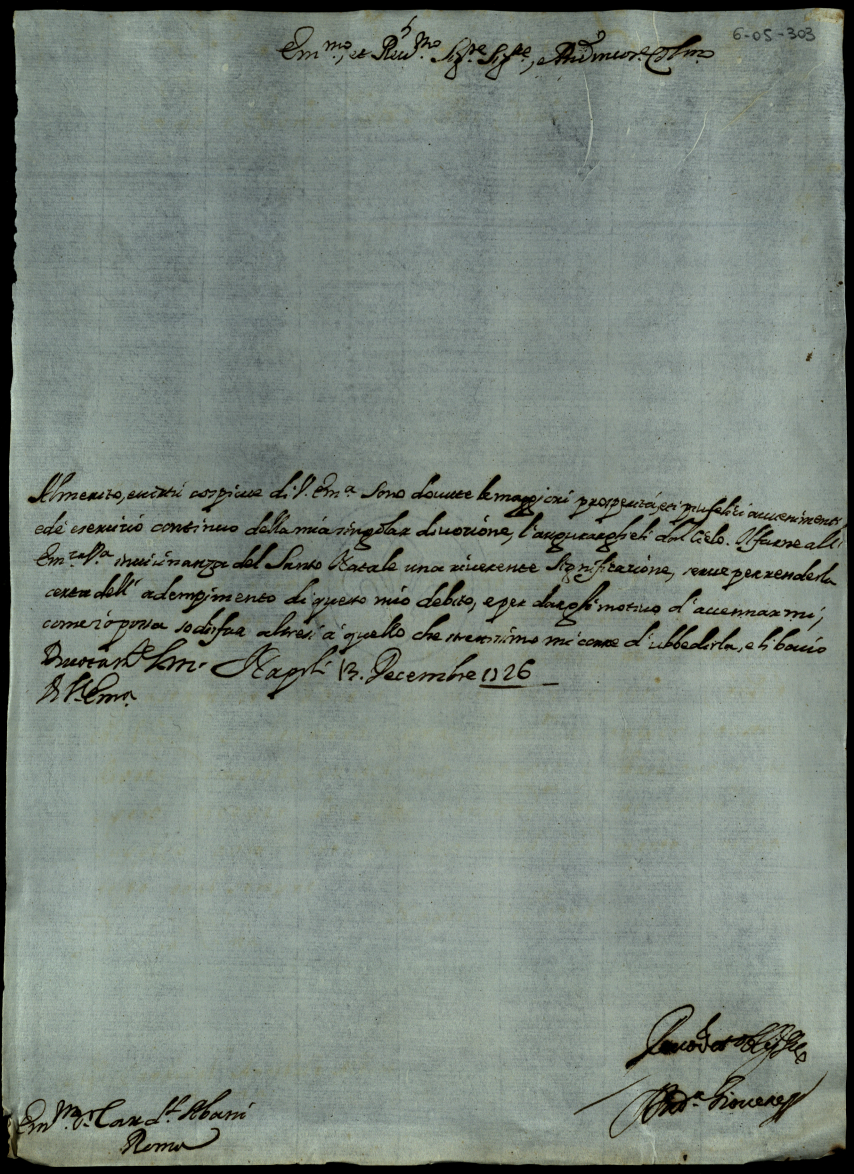 6-05-303
Em.mo, et Reu.mo Sig.re Sig.re, e Pad.n Col.mo
Al merito, e virtù cospicue di V. Em.a sono douute le maggiori prosperità, et i più felici auuenimenti,
ed è esercizio continuo della mia singolar diuozione, l'augurarglieli dal Cielo. Il farne all'
Em.za V.ra in uicinanza del Santo Natale una riuerente significazione, serue per renderla
certa dell' adempimento di questo mio debito, e per dargli motiuo d'accennarmi,
come io possa sodisfar altresì à quello che strettissimo mi corre d'ubbedirla, e li bacio
Napoli 13. Decembre 1726
Di V. Em.a
Em.mo S.r Card.l Albani
Roma